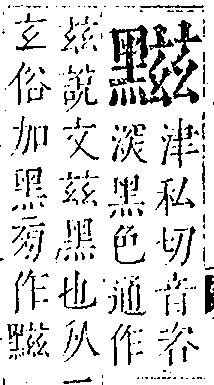 津私切音咨
深黑色通作
茲說文茲黑也从
玄俗加黑旁作